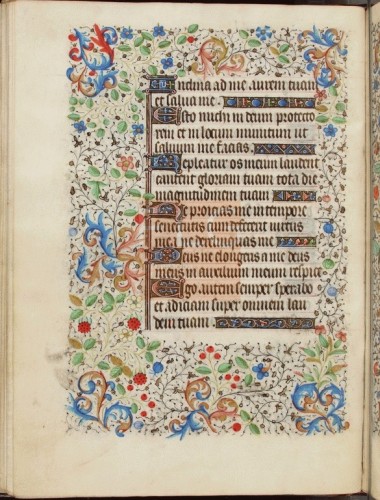 Inclina ad me aurem tuam
et salua me.
Esto michi in deum protecto
rem et in locum munitum ut
saluum me facias.
Repleatur os meum laude ut
cantem gloriam tuam tota die
magnitudinem tuam
Ne proicias me in tempore
senectutis cum defecerit uirtus
mea ne derelinquas me
Deus ne elongeris a me deus
meus in auxilium meum respice
Ego autem semper sperabo
et adiciam super omnem lau
dem tuam.